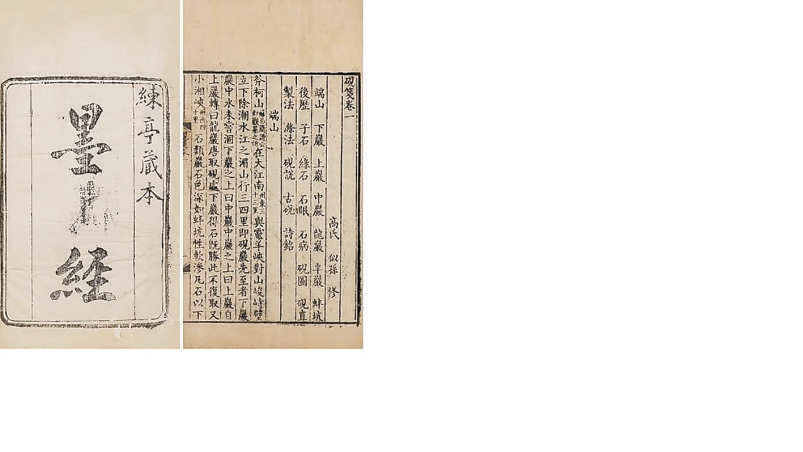 楝亭藏本
墨經
硯箋卷一
高氏 似孫 修
端山 下巖 上巖 中巖 龍巖 蚌坑
後歷 子石 綠石 石眼 石病 硯圖 硯直
製法 滌法 硯說 古硯 詩銘
端山
斧柯山在大江南與靈羊峽對山峻峙壁
立下際潮水江之湄山行三四里即硯巖先至者下巖
巖中水未嘗涸下巖之上曰中巖中巖之上曰上巖自
上巖轉曰龍巖唐取硯處下巖得石既勝此不復取又
小湘峽石類巖石色深如蚌坑性軟滲凡石以下